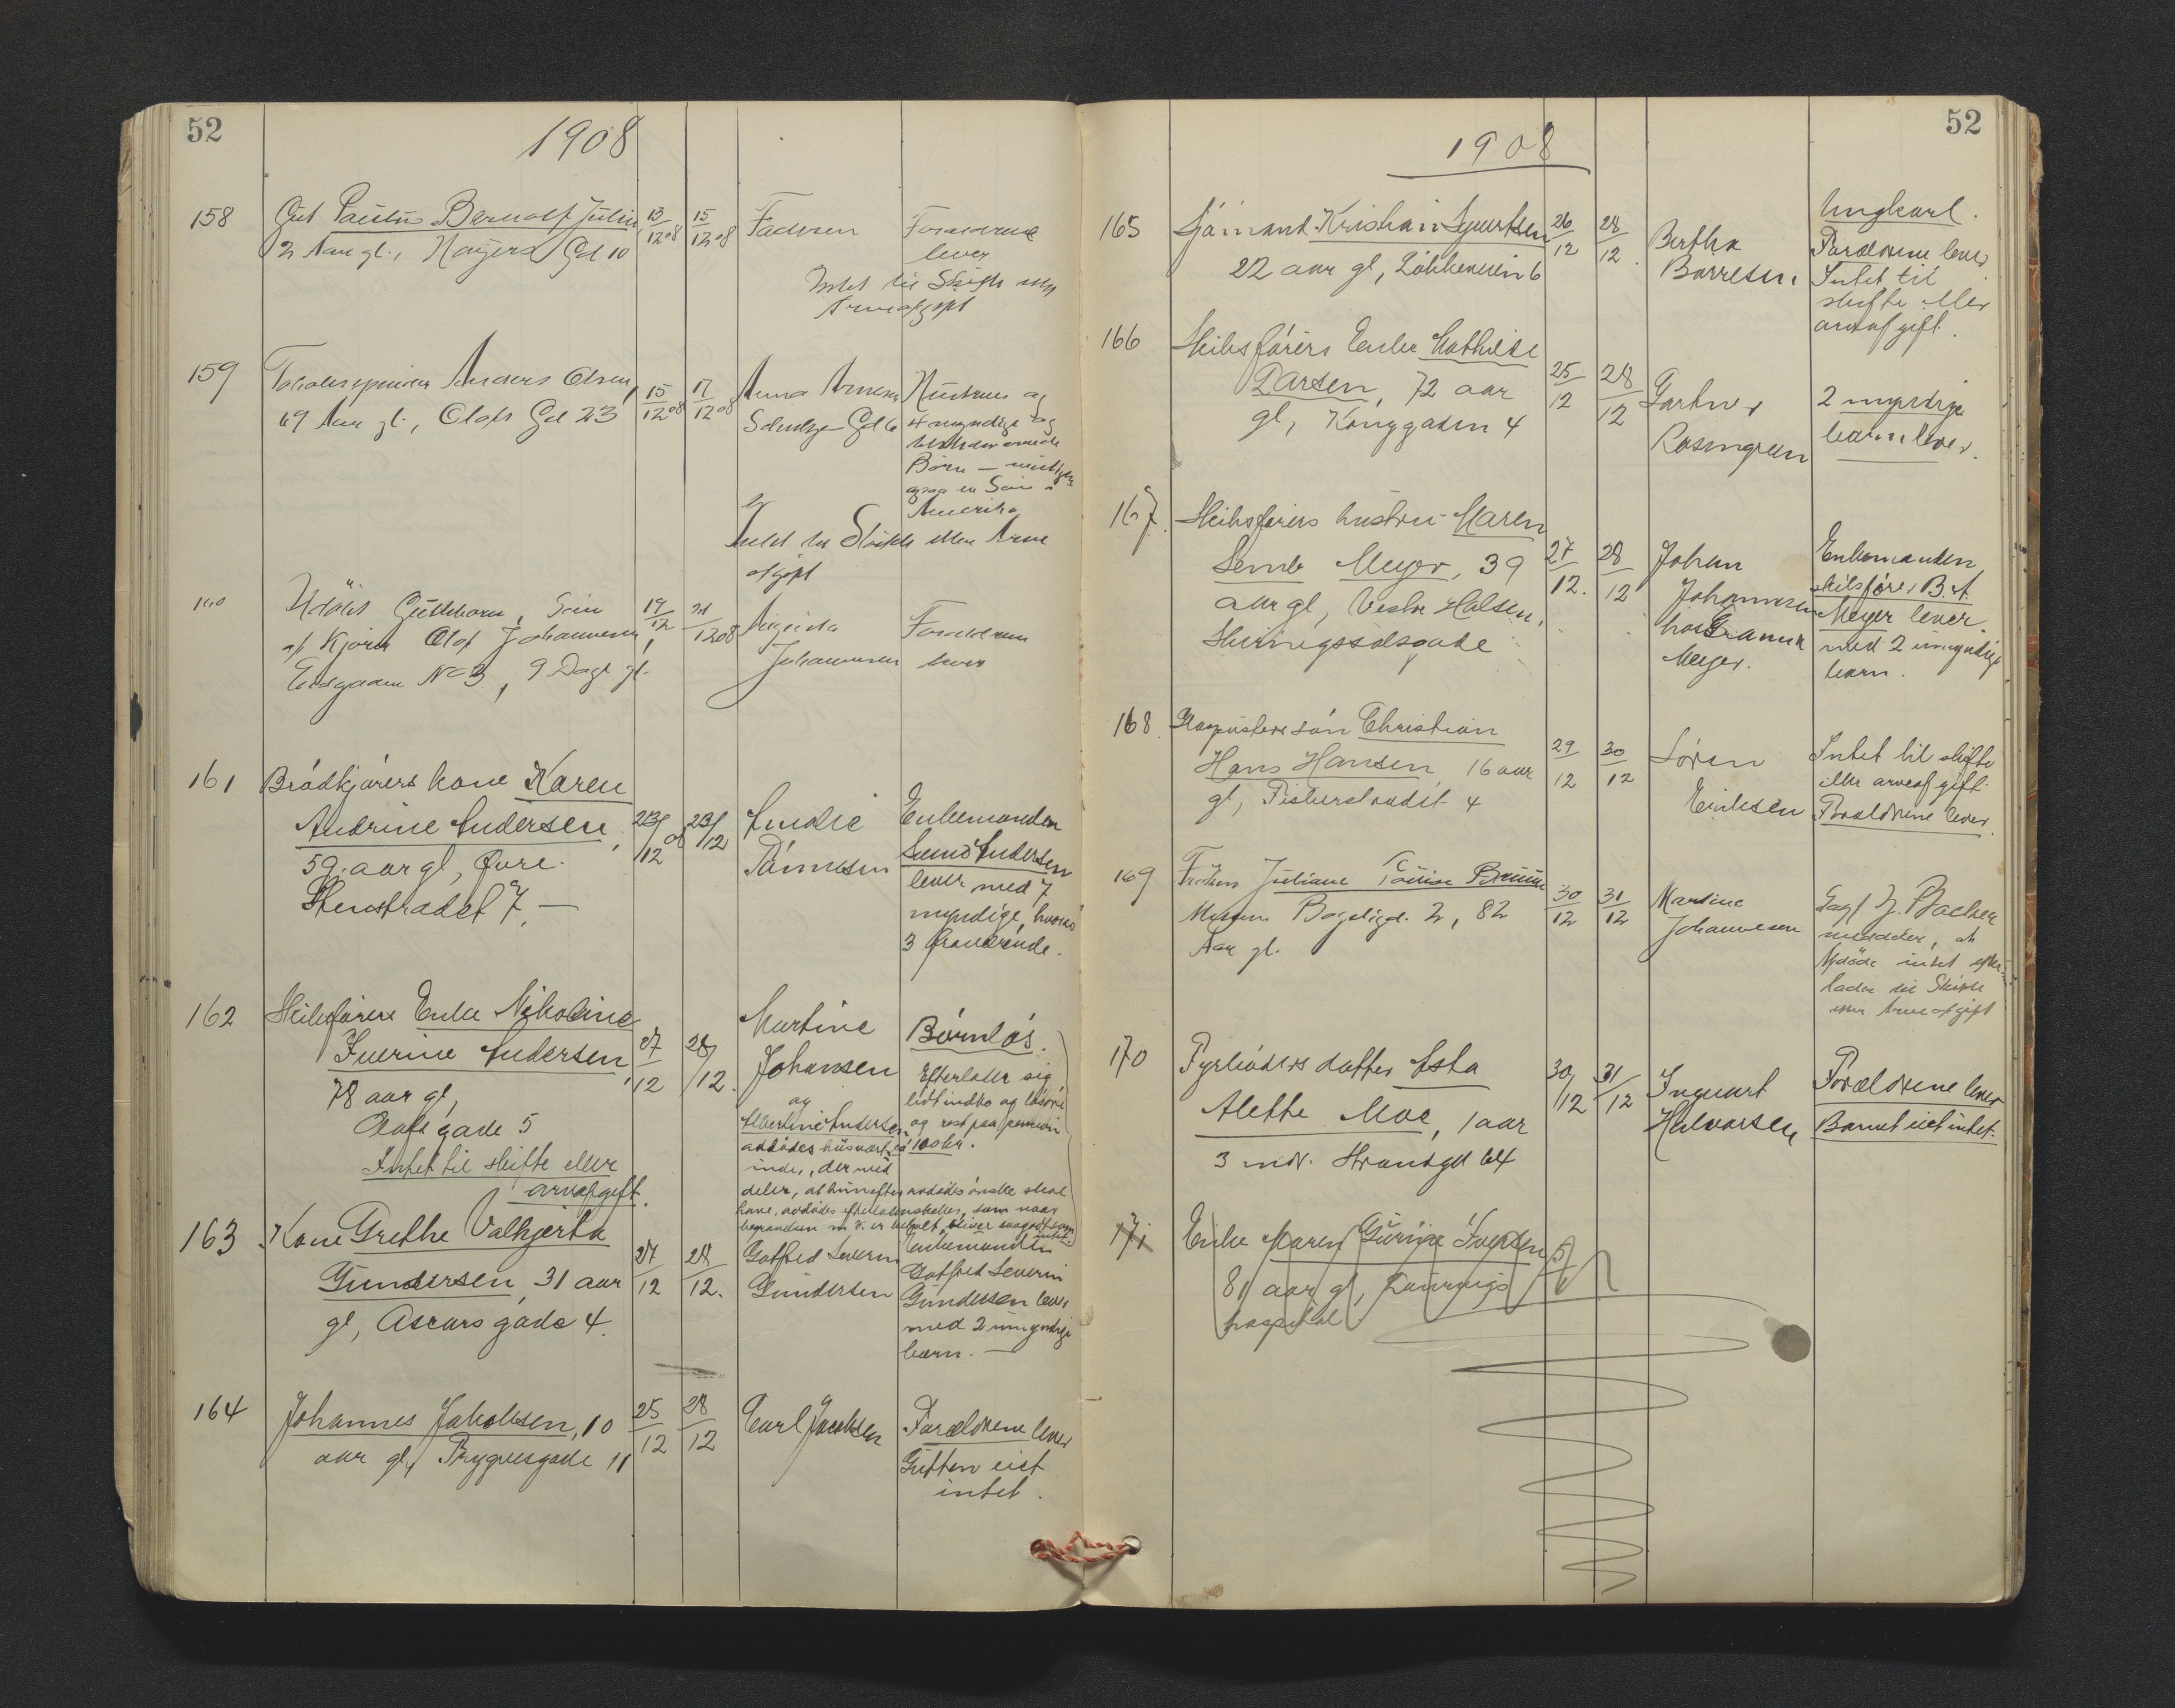 52
1908
158
Gut Paulus Bernolf Julin
2 Aar gl., Nøijers Gd 10
13/12 08
15/12 08
Faderen
Forældrene
lever
Intet til Skifte eller
Arveafgift
159
Tobakspinder Anders Olsen,
69 Aar gl., Olafs Gd 23
15/12 08
17/12 08
Anna Arnesen
Schultze Gd 6
Hustruen og
4 myndige og
Børn —
en Søn i
Amerika
Intet til Skifte eller Arve
afgift
160
Udøbt Guttebarn, Søn
af Kjører Olaf Johannesen,
No 3, 9 Dage gl.
19/12
21/12 08
Augusta
Johannesen
Forældrene
lever
161
Brødkjørers kone Karen
Andrine Andersen,
59. aar gl, Øvre.
Stenstrædet 7. —
23/12 08
23/12
Amalie
Tønnesen
Enkemanden
Andersen
lever med 7
myndige, hvoraf
3 fraværende.
162
Skibsførers Enke Nikoline
Iverine Andersen,
78 aar gl,
Olafs gade 5
Intet til skifte eller
arveafgift.
27/12
28/12.
Martine
Johansen
og
Albertine Andersen
avdødes husvært-
inde, der med
deler, at hun efter avdødes ønske skal
have avdødes efterladenskaber, som naar
begravelsen m. v. er betalt, bliver saagodtsom
intet.
Børnløs.
Efterlader sig
lidt indbo og løsøre
og rest paa pension
ca 100 kr.
163
Kone Grethe Valkjerta
Gundersen, 31 aar
gl, Ascars gade 4.
27/12
28/12.
Gotfred Severin
Gundersen
Enkemanden
Gotfred Severin
Gundersen lever
med 2 umyndige
børn. —
164
Johannes Jakobsen, 10
aar gl, Trygvesgade 11
25/12
28/12
Carl Jacobsen
Forældrene lever
Gutten eiet
intet.
52
1908
165
Sjømand Kristian Syvertsen
22 aar gl, Løkkeveien 6
26/12
28/12.
Bertha
Børresen
Ungkarl.
Forældrene lever
Intet til
skifte eller
arveafgift.
166
Skibsførers Enke Mathilde
Larsen, 72 aar
gl, Kongsgaden 4
25/12
28/12
Gartner
Rosengreen
2 myndige
børn lever.
167.
Skibsførers hustru Maren
Semb Meyer, 39
aar gl, Vestre Halsen,
Hvringssalsgade
27/12.
28/12
Johan
Johannesen
hos Gramm
Meyer.
Enkemanden,
skibsfører B. A.
Meyer lever
med 2 umyndige
børn.
168.
søn Christian
Hans Hansen, 16 aar
gl, Fiskerstrædet 4
29/12
30/12
Søren
Eriksen
Intet til skifte
eller arveafgift.
Forældrene lever.
169
Frøken Juliane Louise Bruun
2, 82
Aar gl.
30/12
31/12
Martine
Johannesen
Sagf
meddeler, at
Afdøde intet efter-
lader til Skifte
eller Arveafgift
170
Fyrbøders datter Asta
Alethe Moe, 1 aar
3 mdr. Strandgd 64
30/12
31/12
Ingvart
Halvorsen
Forældrene lever
Barnet eiet intet.
171
Enke Maren Gurine Iversen
81 aar gl,
hospital
5/1